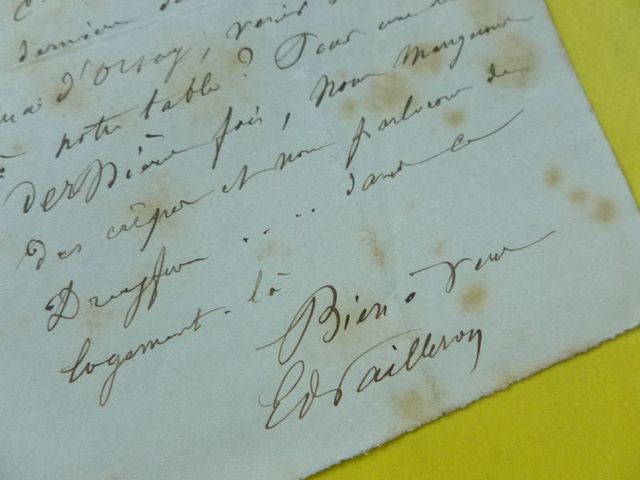 dernière
quai d'Orsay, venir
à notre table ? Pour une
dernière fois, nous mangerons
des crêpes et nous parlerons de
Dreyfus .... dans ce
logement-là
Bien à vous
Ed Pailleron